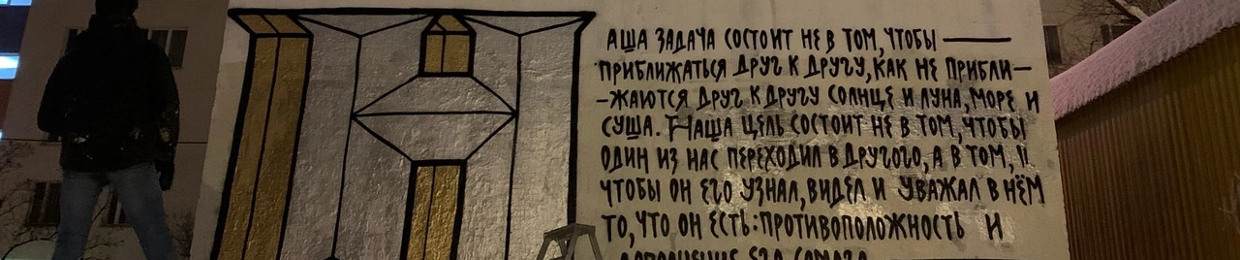 НАША ЗАДАЧА СОСТОИТ НЕ В ТОМ, ЧТОБЫ —
ПРИБЛИЖАТЬСЯ ДРУГ К ДРУГУ, КАК НЕ ПРИБЛИ—
-ЖАЮТСЯ ДРУГ К ДРУГУ СОЛНЦЕ И ЛУНА, МОРЕ И
СУША. НАША ЦЕЛЬ СОСТОИТ НЕ В ТОМ, ЧТОБЫ
ОДИН ИЗ НАС ПЕРЕХОДИЛ В ДРУГОГО, А В ТОМ,
ЧТОБЫ ОН ЕГО УЗНАЛ, ВИДЕЛ И УВАЖАЛ В НЁМ
ТО, ЧТО ОН ЕСТЬ: ПРОТИВОПОЛОЖНОСТЬ И
ДОПОЛНЕНИЕ ЕГО САМОГО